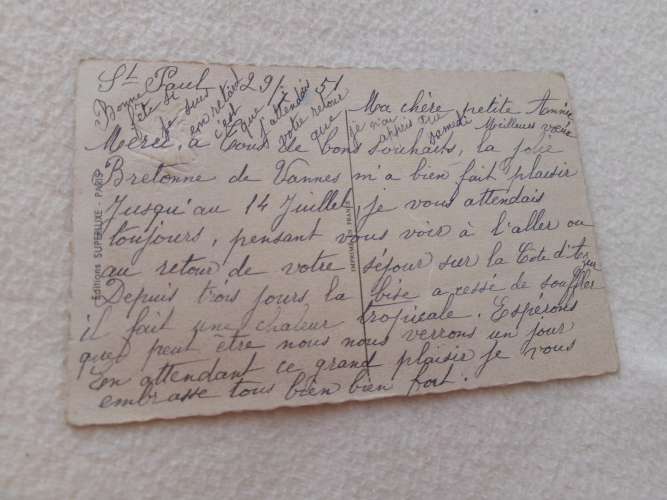 St Paul 29/7 51
Ma chère petite Année
Merci à tous de bons souhaits, la jolie
Bretonne de Vannes m'a bien fait plaisir
Jusqu'au 14 Juillet je vous attendais
toujours, pensant vous voir à l'aller ou
au retour de votre séjour sur la Cote d'Azur
Depuis trois jours, la bise a cessé de souffler
il fait une chaleur tropicale. Espérons
que peut être nous nous verrons un jour
En attendant ce grand plaisir je vous
embrasse tous bien bien fort.
Bonne fête si
je suis
en retard
c'est que
j'attendais
votre retour
que je n'ai
appris que
samedi
Meilleurs vœux
Editions SUPERLUXE - PARIS
IMPRIMÉ EN FRANCE